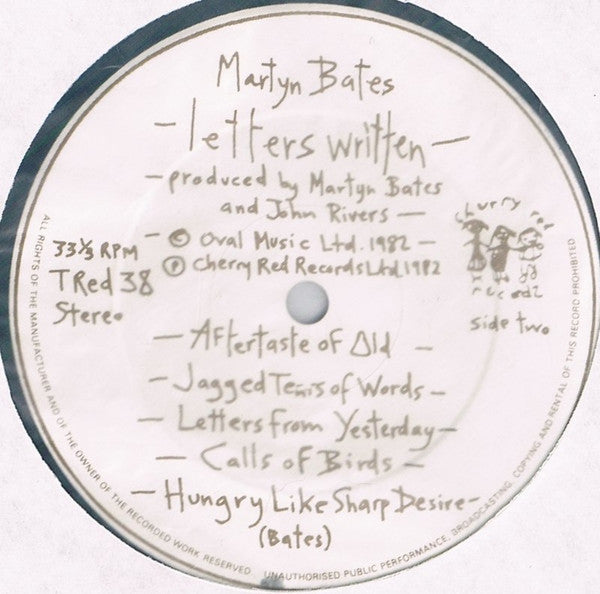 Martyn Bates
- letters written -
- produced by Martyn Bates
and John Rivers -
- © Oval Music Ltd. 1982 -
℗ Cherry Red Records Ltd. 1982
33⅓ RPM
TRed 38
Stereo
churry red
recordz
side two
- Aftertaste of Old -
- Jagged of Words -
- Letters from Yesterday -
- Calls of Birds -
- Hungry Like Sharp Desire -
(Bates)
ALL RIGHTS OF THE MANUFACTURER AND OF THE OWNER OF THE RECORDED WORK RESERVED. UNAUTHORISED PUBLIC PERFORMANCE, BROADCASTING, COPYING AND RENTAL OF THIS RECORD PROHIBITED